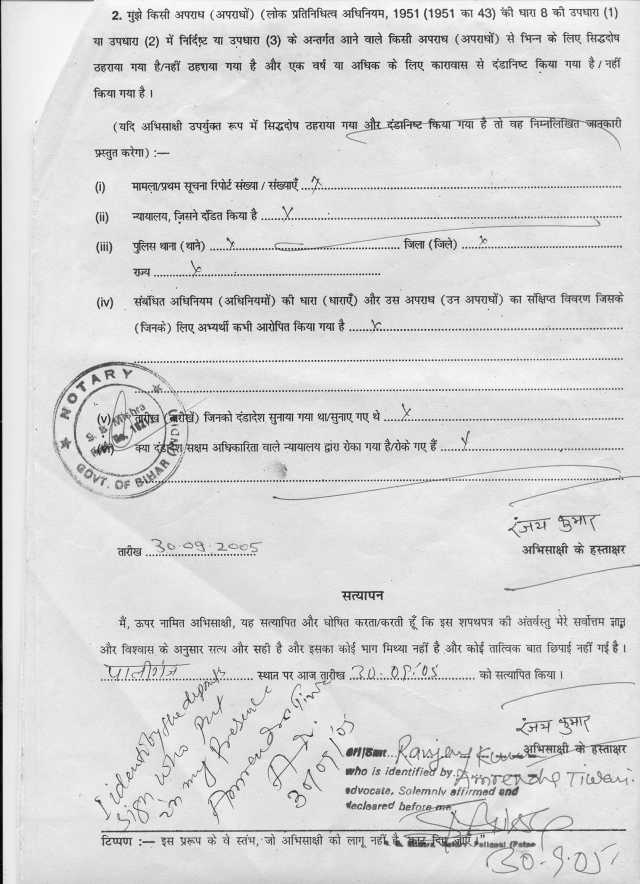 2. मुझे किसी अपराध (अपराधों) (लोक प्रतिनिधित्व अधिनियम, 1951 (1951 का 43) की धारा 8 की उपधारा (1)
या उपधारा (2) में निर्दिष्ट या उपधारा (3) के अन्तर्गत आने वाले किसी अपराध (अपराधों) से भिन्न के लिए सिद्धदोष
ठहराया गया है/नहीं ठहराया गया है और एक वर्ष या अधिक के लिए कारावास से दंडानिष्ट किया गया है / नहीं
किया गया है ।
(यदि अभिसाक्षी उपर्युक्त रूप में सिद्धदोष ठहराया गया और दंडानिष्ट किया गया है तो वह निम्नलिखित जानकारी
प्रस्तुत करेगा) :—
(i) मामला/प्रथम सूचना रिपोर्ट संख्या / संख्याएँ ..x..
(ii) न्यायालय, जिसने दंडित किया है ..x..
(iii) पुलिस थाना (थाने) ..x.. जिला (जिले) ..x..
राज्य ..x..
(iv) संबंधित अधिनियम (अधिनियमों) की धारा (धाराएँ) और उस अपराध (उन अपराधों) का संक्षिप्त विवरण जिसके
(जिनके) लिए अभ्यर्थी कभी आरोपित किया गया है ..x..
NOTARY
S. B. Mishra
GOVT. OF BIHAR (INDIA)
(v) तारीख (तारीखें) जिनको दंडादेश सुनाया गया था/सुनाए गए थे ..x..
(vi) क्या दंडादेश सक्षम अधिकारिता वाले न्यायालय द्वारा रोका गया है/रोके गए हैं ..x..
रंजय कुमार
तारीख 30.09.2005 अभिसाक्षी के हस्ताक्षर
सत्यापन
मैं, ऊपर नामित अभिसाक्षी, यह सत्यापित और घोषित करता/करती हूँ कि इस शपथपत्र की अंतर्वस्तु मेरे सर्वोत्तम ज्ञान
और विश्वास के अनुसार सत्य और सही है और इसका कोई भाग मिथ्या नहीं है और कोई तात्विक बात छिपाई नहीं गई है ।
पालीगंज स्थान पर आज तारीख 30.09.05 को सत्यापित किया ।
रंजय कुमार
अभिसाक्षी के हस्ताक्षर
I identify the deponent
sign who put
in my presence
Amrendra Tiwari
Adv.
30/09/05
Sri/Smt. Ranjay Kumar
who is identified by Amrendra Tiwari
advocate, Solemnly affirmed and
declared before me
टिप्पण :— इस प्ररूप के वे स्तंभ, जो अभिसाक्षी को लागू नहीं है काट दिए जाएँ ।"
30.9.05